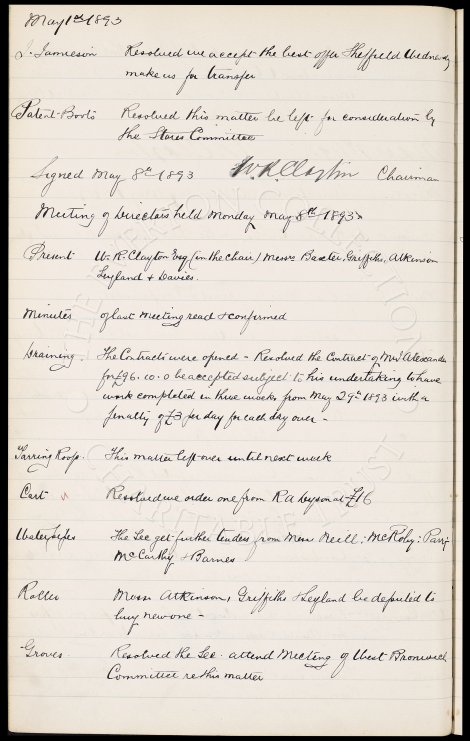 May 1st 1893
J. Jamieson Resolved we accept the best offer Sheffield Wednesday
make us for transfer
Patent Boots Resolved this matter be left for consideration by
the Stores Committee
Signed May 8th 1893 W.R. Clayton Chairman
Meeting of Directors held Monday May 8th 1893
Present W. R. Clayton Esq (in the chair) Messrs Baxter, Griffiths, Atkinson
Leyland & Davies.
Minutes of last meeting read & confirmed
Draining. The Contracts were opened - Resolved the Contract of Alexander
for £96. 10. 0 be accepted subject to his undertaking to have
work completed in three weeks from May 29th 1893 with a
penalty of £3 per day for each day over -
Tarring Roofs. This matter left over until next week
Cart Resolved we order one from R A at £16
Water Pipes The Sec get further tenders from Messrs Neill: McRoby: Parry
McCarthy & Barnes
Roller Messrs Atkinson, Griffiths & Leyland be deputed to
buy new one -
Groves Resolved the Sec. attend Meeting of West Bromwich
Committee re this matter
THE EVERTON COLLECTION
CHARITABLE TRUST